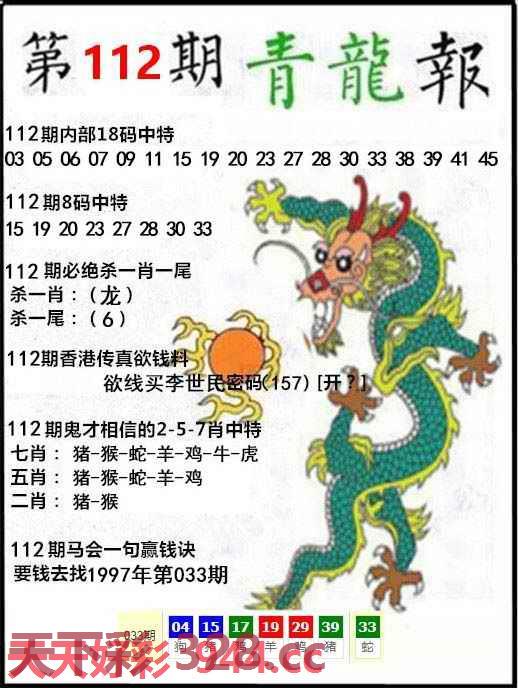 第112期青龍報
112期内部18码中特
03 05 06 07 09 11 15 19 20 23 27 28 30 33 38 39 41 45
112期8码中特
15 19 20 23 27 28 30 33
112期必绝杀一肖一尾
杀一肖：(龙)
杀一尾：(6)
112期香港传真欲钱料
欲线买李世民密码(157) [开？]
112期鬼才相信的2-5-7肖中特
七肖：猪-猴-蛇-羊-鸡-牛-虎
五肖：猪-猴-蛇-羊-鸡
二肖：猪-猴
112期马会一句赢钱诀
要钱去找1997年第033期
033期 04 15 17 19 29 39 33
狗 猪 羊 鸡 猪 蛇
天下好彩 3944.cc